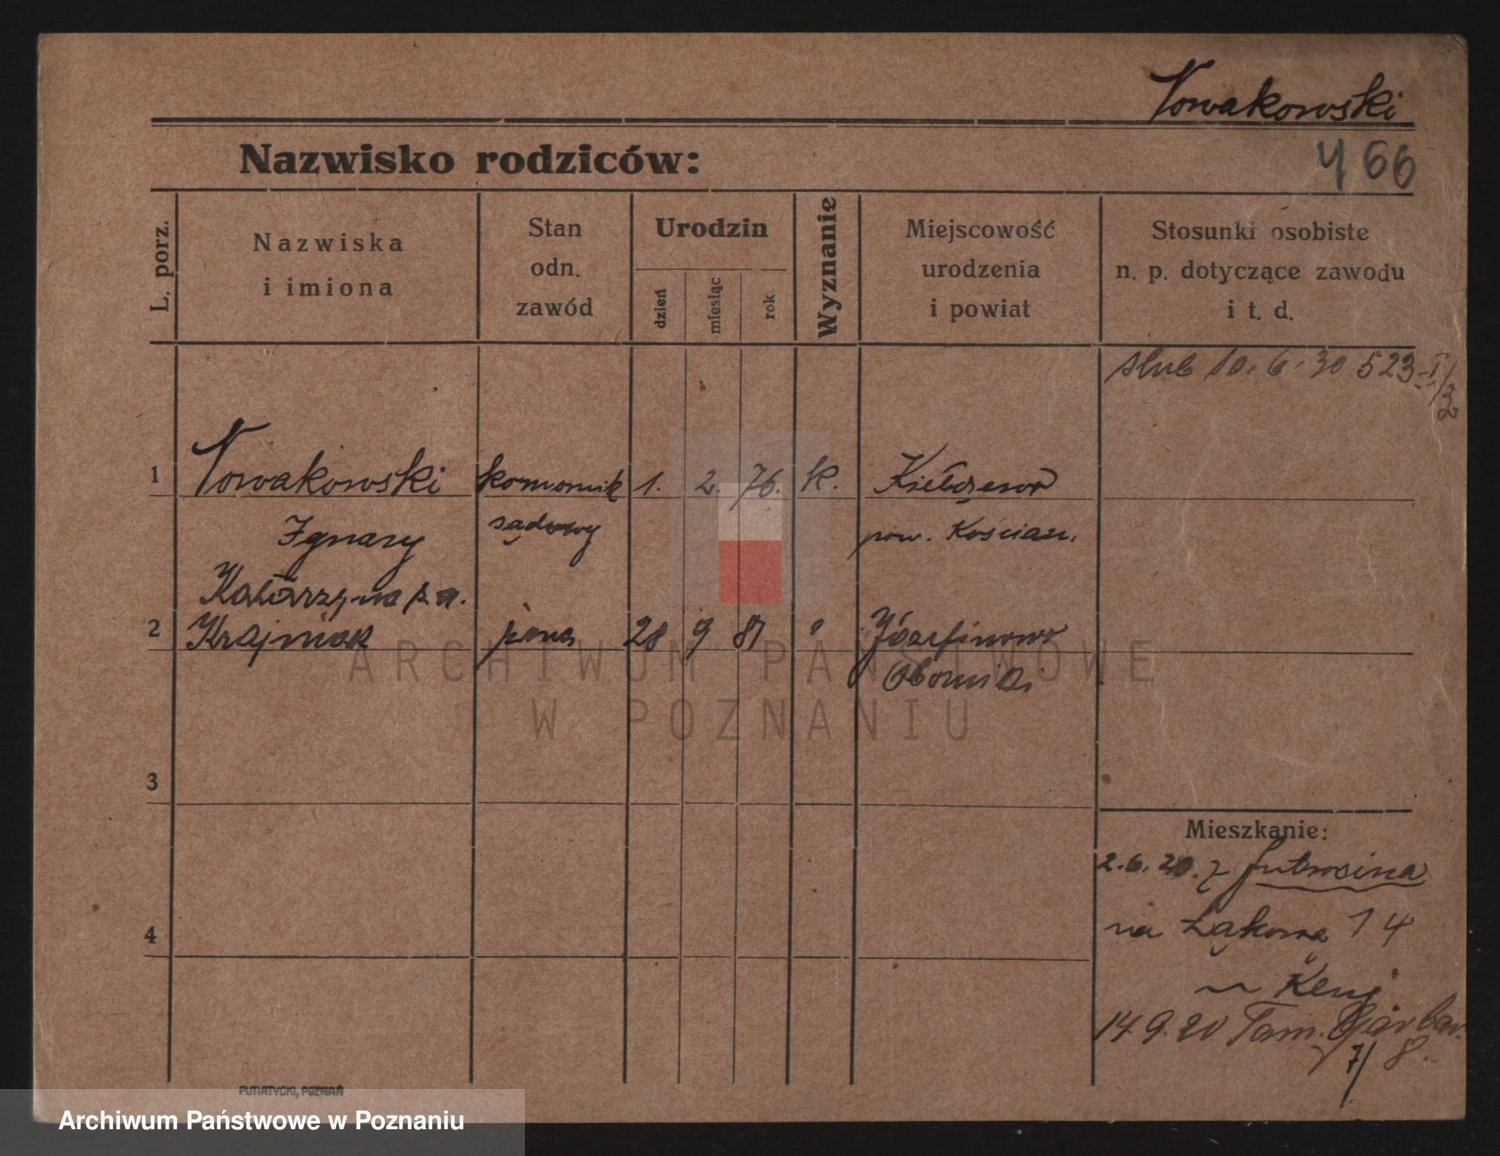 Nowakowski
466
Nazwisko rodziców:
L. porz.
Nazwiska
i imiona
Stan
odn.
zawód
Urodzin
dzień
miesiąc
rok
Wyznanie
Miejscowość
urodzenia
i powiat
Stosunki osobiste
n. p. dotyczące zawodu
i t. d.
slub 10.6.30 523-I/2
1 Nowakowski komornik 1. 2. 76. k. Kiełczewo
Ignacy sądowy pow. Kościan.
Katarzyna z d.
2 Krajniak żona 28 9 87 " Józefinowo
Oborniki
3
4
Mieszkanie:
2.6.20. z Jutrosina
na Łąkowa 14
14.9.20 Tam. Garbar.
7/8.
ARCHIWUM PAŃSTWOWE
W POZNANIU
PUTIATYCKI, POZNAŃ
Archiwum Państwowe w Poznaniu